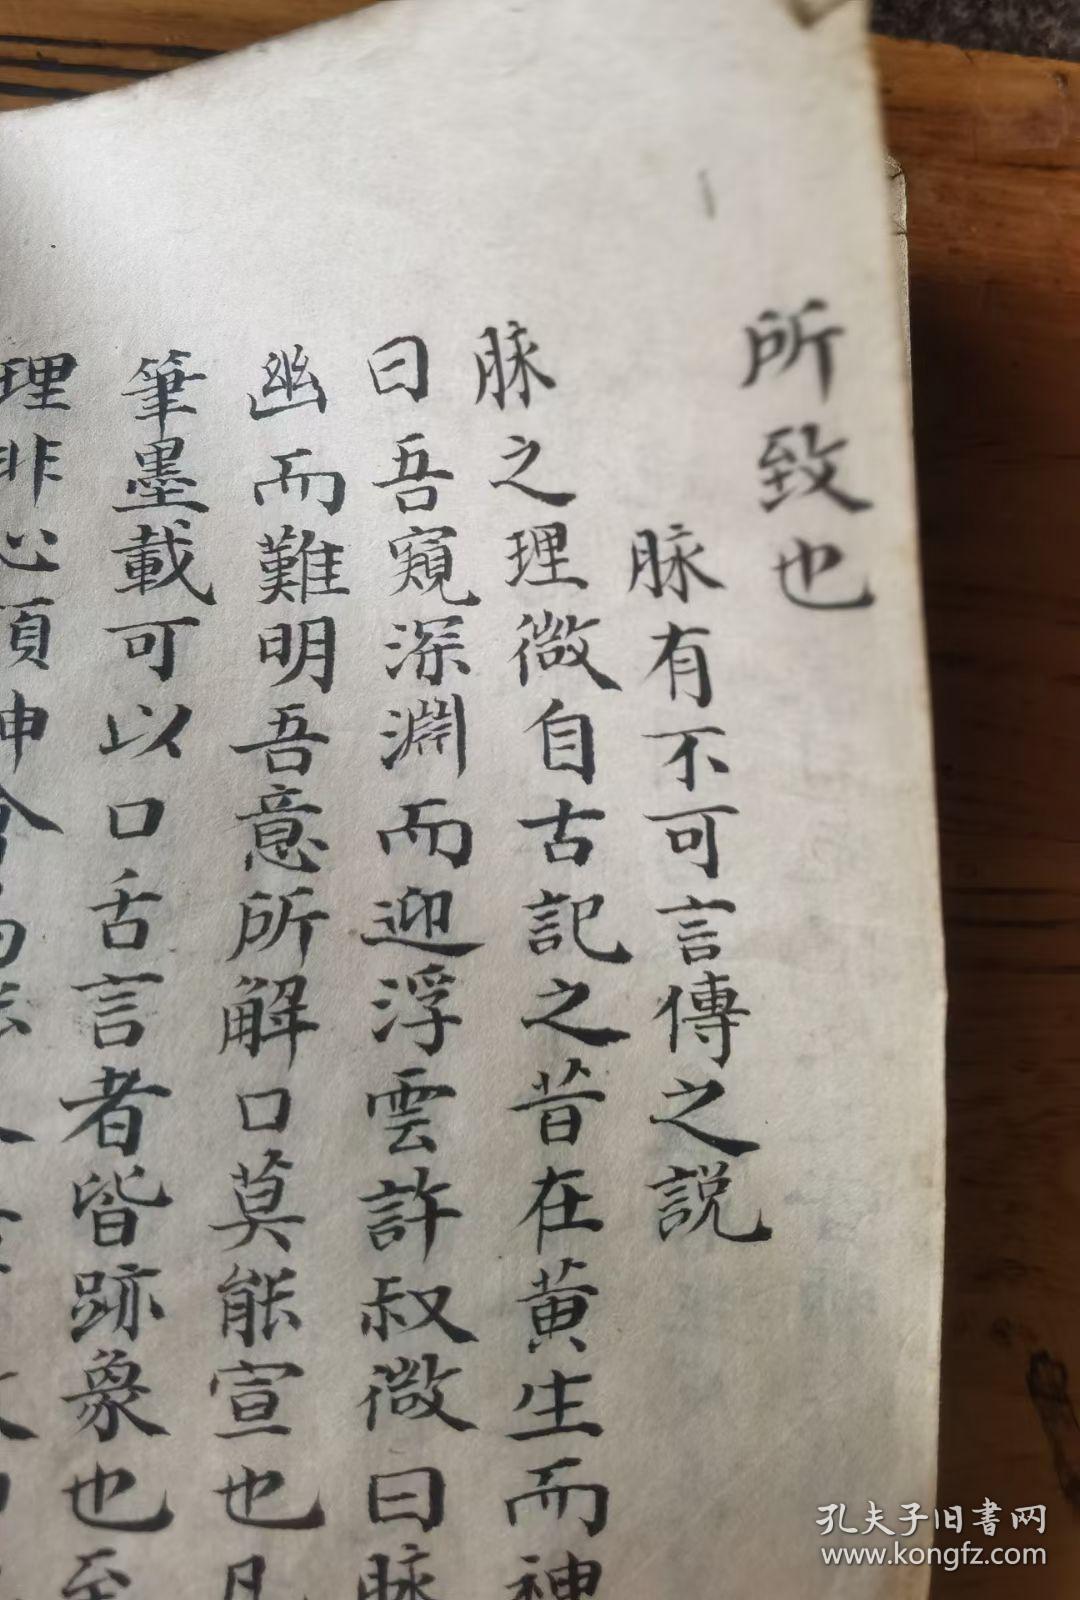 所致也
脉有不可言傳之説
脉之理微自古記之昔在黄生而神
曰吾窺深淵而迎浮雲許叔微曰脉
幽而難明吾意所解口莫能宣也凡
筆墨載可以口舌言者皆跡象也至
理非心須神會
孔夫子旧書网
www.kongfz.com